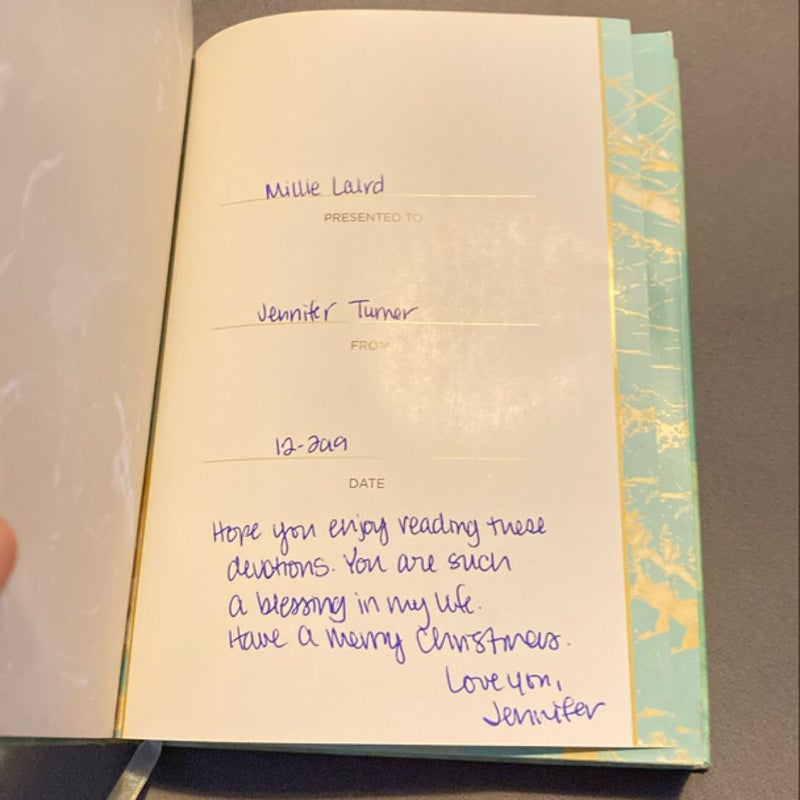 Millie Laird
PRESENTED TO
Jennifer Turner
FROM
12-2019
DATE
Hope you enjoy reading these
devotions. You are such
a blessing in my life.
Have a merry Christmas.
Love you,
Jennifer